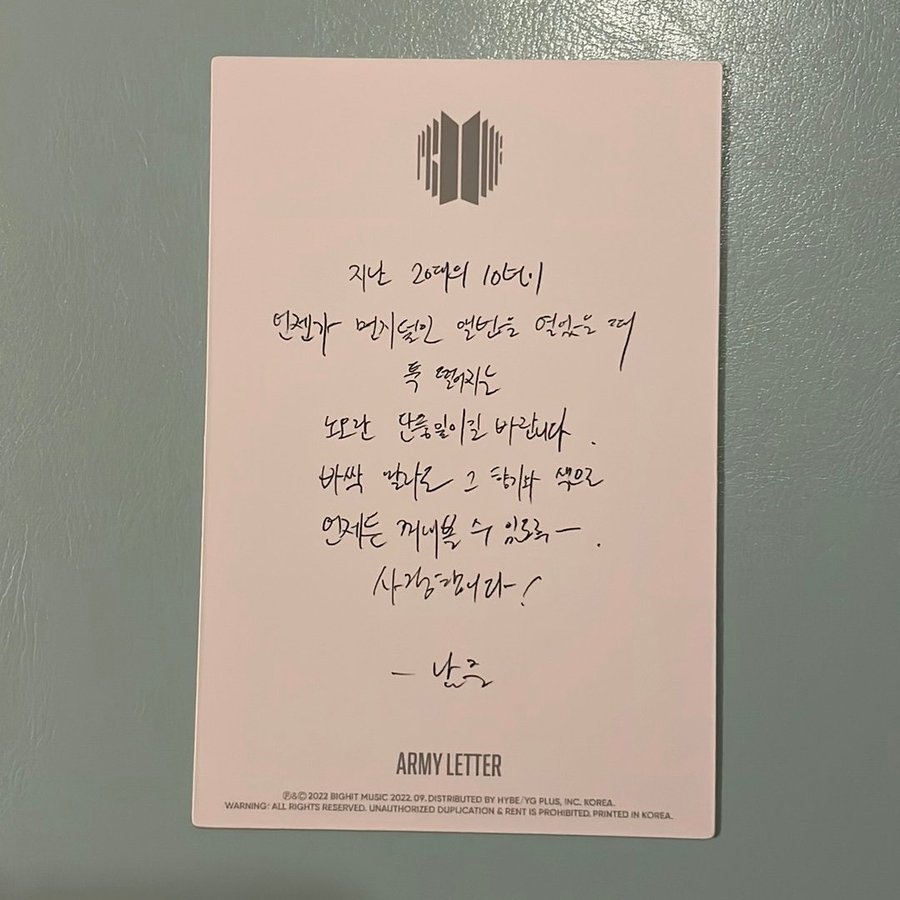 지난 20대의 10년이
언젠가 먼지덮인 앨범을 열었을 때
툭 떨어지는
노오란 단풍잎이길 바랍니다.
바싹 말라도 그 향기와 색으로
언제든 꺼내볼 수 있도록—.
사랑합니다!
- 남준
ARMY LETTER
℗&© 2022 BIGHIT MUSIC 2022. 09. DISTRIBUTED BY HYBE/YG PLUS, INC. KOREA.
WARNING: ALL RIGHTS RESERVED. UNAUTHORIZED DUPLICATION & RENT IS PROHIBITED. PRINTED IN KOREA.